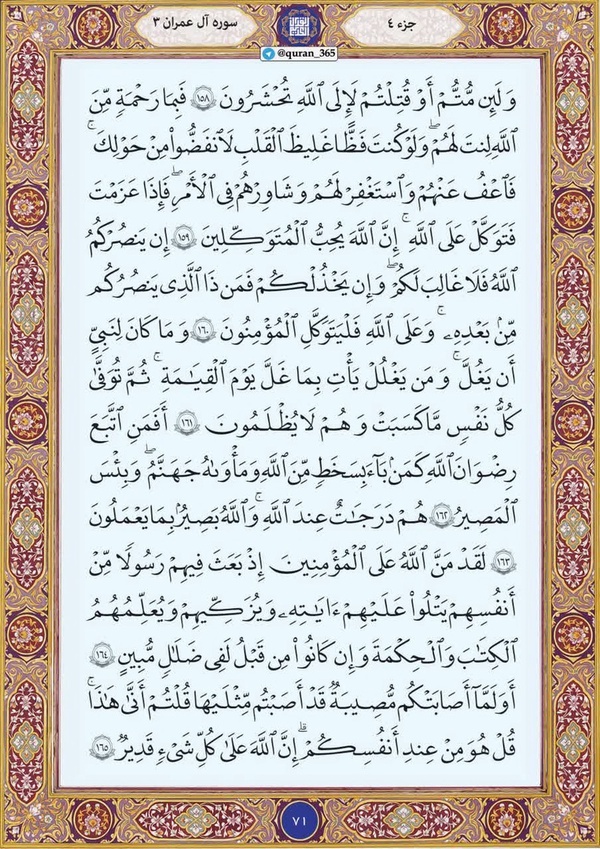 جزء ٤
سوره آل عمران ٣
@quran_365
وَلَئِن مُّتُّمْ أَوْ قُتِلْتُمْ لَإِلَى ٱللَّهِ تُحْشَرُونَ ١٥٨ فَبِمَا رَحْمَةٍ مِّنَ
ٱللَّهِ لِنتَ لَهُمْ ۖ وَلَوْ كُنتَ فَظًّا غَلِيظَ ٱلْقَلْبِ لَٱنفَضُّوا۟ مِنْ حَوْلِكَ ۖ
فَٱعْفُ عَنْهُمْ وَٱسْتَغْفِرْ لَهُمْ وَشَاوِرْهُمْ فِى ٱلْأَمْرِ ۖ فَإِذَا عَزَمْتَ
فَتَوَكَّلْ عَلَى ٱللَّهِ ۚ إِنَّ ٱللَّهَ يُحِبُّ ٱلْمُتَوَكِّلِينَ ١٥٩ إِن يَنصُرْكُمُ
ٱللَّهُ فَلَا غَالِبَ لَكُمْ ۖ وَإِن يَخْذُلْكُمْ فَمَن ذَا ٱلَّذِى يَنصُرُكُم
مِّنۢ بَعْدِهِۦ ۗ وَعَلَى ٱللَّهِ فَلْيَتَوَكَّلِ ٱلْمُؤْمِنُونَ ١٦٠ وَمَا كَانَ لِنَبِىٍّ
أَن يَغُلَّ ۚ وَمَن يَغْلُلْ يَأْتِ بِمَا غَلَّ يَوْمَ ٱلْقِيَٰمَةِ ۚ ثُمَّ تُوَفَّىٰ
كُلُّ نَفْسٍ مَّا كَسَبَتْ وَهُمْ لَا يُظْلَمُونَ ١٦١ أَفَمَنِ ٱتَّبَعَ
رِضْوَٰنَ ٱللَّهِ كَمَنۢ بَآءَ بِسَخَطٍ مِّنَ ٱللَّهِ وَمَأْوَىٰهُ جَهَنَّمُ ۚ وَبِئْسَ
ٱلْمَصِيرُ ١٦٢ هُمْ دَرَجَٰتٌ عِندَ ٱللَّهِ ۗ وَٱللَّهُ بَصِيرٌۢ بِمَا يَعْمَلُونَ
١٦٣ لَقَدْ مَنَّ ٱللَّهُ عَلَى ٱلْمُؤْمِنِينَ إِذْ بَعَثَ فِيهِمْ رَسُولًا مِّنْ
أَنفُسِهِمْ يَتْلُوا۟ عَلَيْهِمْ ءَايَٰتِهِۦ وَيُزَكِّيهِمْ وَيُعَلِّمُهُمُ
ٱلْكِتَٰبَ وَٱلْحِكْمَةَ وَإِن كَانُوا۟ مِن قَبْلُ لَفِى ضَلَٰلٍ مُّبِينٍ ١٦٤
أَوَلَمَّآ أَصَٰبَتْكُم مُّصِيبَةٌ قَدْ أَصَبْتُم مِّثْلَيْهَا قُلْتُمْ أَنَّىٰ هَٰذَا ۖ
قُلْ هُوَ مِنْ عِندِ أَنفُسِكُمْ ۗ إِنَّ ٱللَّهَ عَلَىٰ كُلِّ شَىْءٍ قَدِيرٌ ١٦٥
٧١